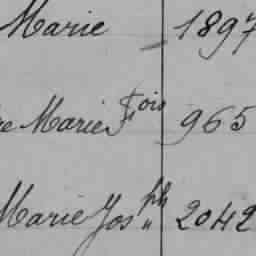 Marie 1897
re Marie Fçois 965
Marie Josph 2042